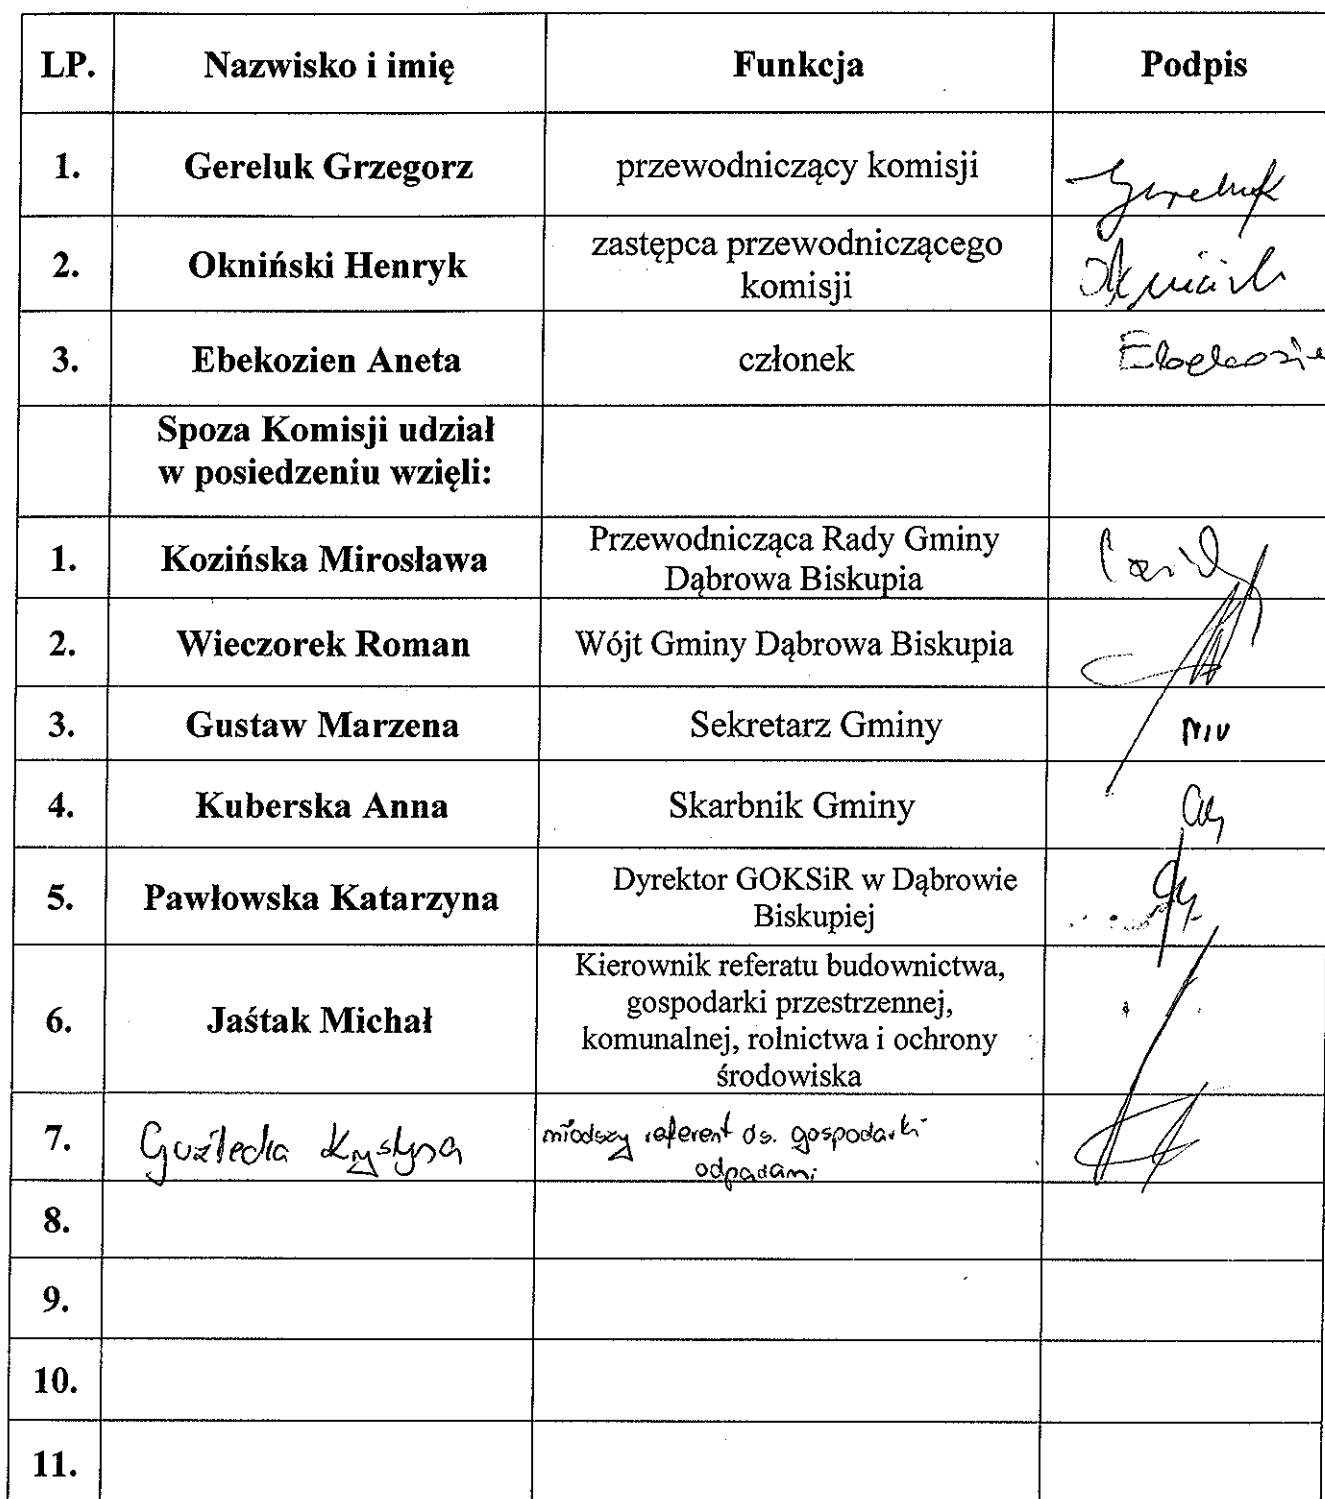 LP. Nazwisko i imię Funkcja Podpis
1. Gereluk Grzegorz przewodniczący komisji Gereluk
2. Okniński Henryk zastępca przewodniczącego
komisji
3. Ebekozien Aneta członek
Spoza Komisji udział
w posiedzeniu wzięli:
1. Kozińska Mirosława Przewodnicząca Rady Gminy
Dąbrowa Biskupia
2. Wieczorek Roman Wójt Gminy Dąbrowa Biskupia
3. Gustaw Marzena Sekretarz Gminy
4. Kuberska Anna Skarbnik Gminy
5. Pawłowska Katarzyna Dyrektor GOKSiR w Dąbrowie
Biskupiej
6. Jaśtak Michał Kierownik referatu budownictwa,
gospodarki przestrzennej,
komunalnej, rolnictwa i ochrony
środowiska
7. Krystyna młodszy referent ds. gospodarki
odpadami
8.
9.
10.
11.